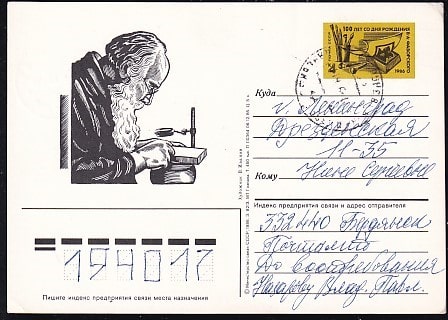 100 ЛЕТ СО ДНЯ РОЖДЕНИЯ
В.А. ФАВОРСКОГО
ПОЧТА СССР
1986
Куда
г. Ленинград
11-35
Кому
Нине Сергеевне
Индекс предприятия связи и адрес отправителя
332440 Бердянск
Почтамт
До востребования
Назарову Влад. Павл.
194017
Пишите индекс предприятия связи места назначения
© Министерство связи СССР. 1986.
Художник В. Власов